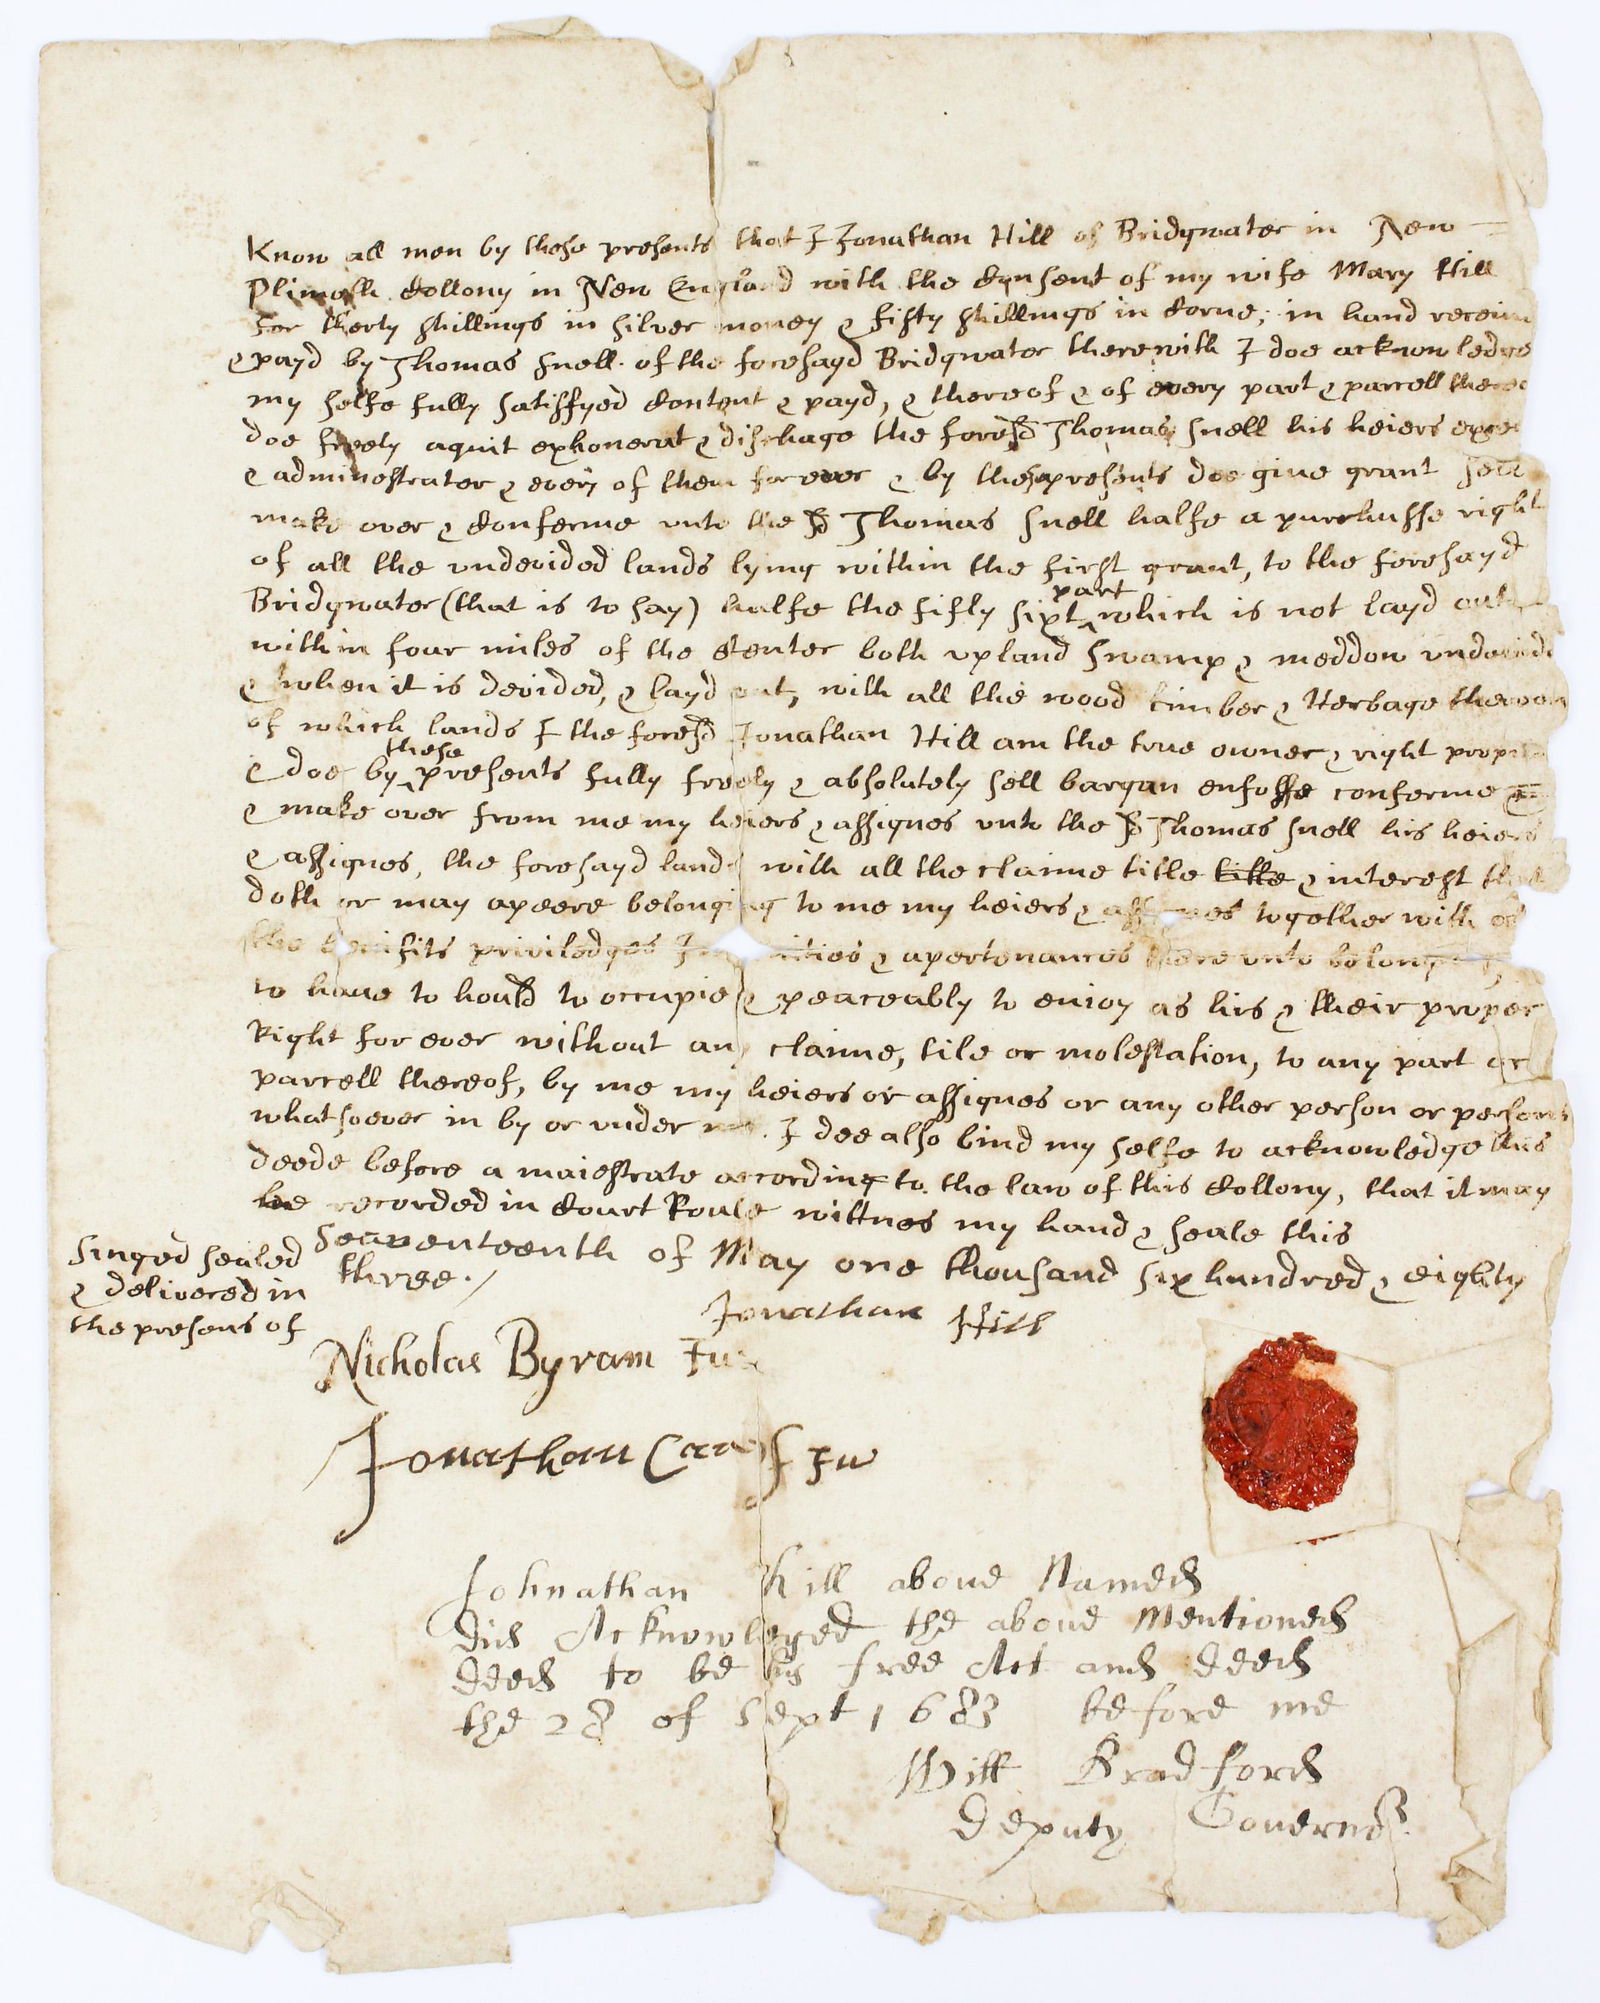 Know all men by these presents that I Jonathan Hill of Bridgwater in New
Plimoth Collony in New England with the Consent of my wife Mary Hill
for therty shillings in silver money & fifty shillings in Corne; in hand
& payd by Thomas Snell of the foresayd Bridgwater therewith I doe acknowledge
my selfe fully satisfyed Content & payd, & thereof & of every part & parcell
doe freely aquit exhonerat & dischage the foresd Thomas Snell his heiers
& adminestrater & every of them forever & by these presents doe give grant sell
make over & Conferme unto the sd Thomas Snell halfe a purchusse right
of all the undevided lands lying within the first grant, to the foresayd
part
Bridgwater (that is to say) halfe the fifty sixt ^ which is not layd out
within four miles of the Center both upland swamp & meddow
& when it is devided, & layd out, with all the wood timber & Herbage
of which lands I the foresd Jonathan Hill am the true owner & right
these
& doe by ^ presents fully freely & absolutely sell bargan enfoffe conferme
& make over from me my heiers & assignes unto the sd Thomas Snell his heiers
& assignes, the foresayd lands with all the claime title title & interest that
doth or may apeere belonging to me my heiers & assignes together with
the benifits priviledges & apertenances thereunto belonging
to have to hould to occupie & peaceably to enioy as his & their proper
Right for ever without any claime, tile or molestation, to any part or
parcell thereof, by me my heiers or assignes or any other person or persons
whatsoever in by or under me. I doe also bind my selfe to acknowledge this
deede before a maiestrate according to the law of this Collony, that it may
be recorded in Court Roule wittnes my hand & seale this
Seaventeenth of May one thousand six hundred & eighty
three.
Singed sealed
& delivered in
the presens of
Jonathan Hill
Nicholas Byram Jur
Jonathan Cary Ju
Johnathan hill above Named
did Acknowleged the above Mentioned
deed to be his free Act and deed
the 28 of Sept 1683 before me
Will Bradford
Deputy Governor